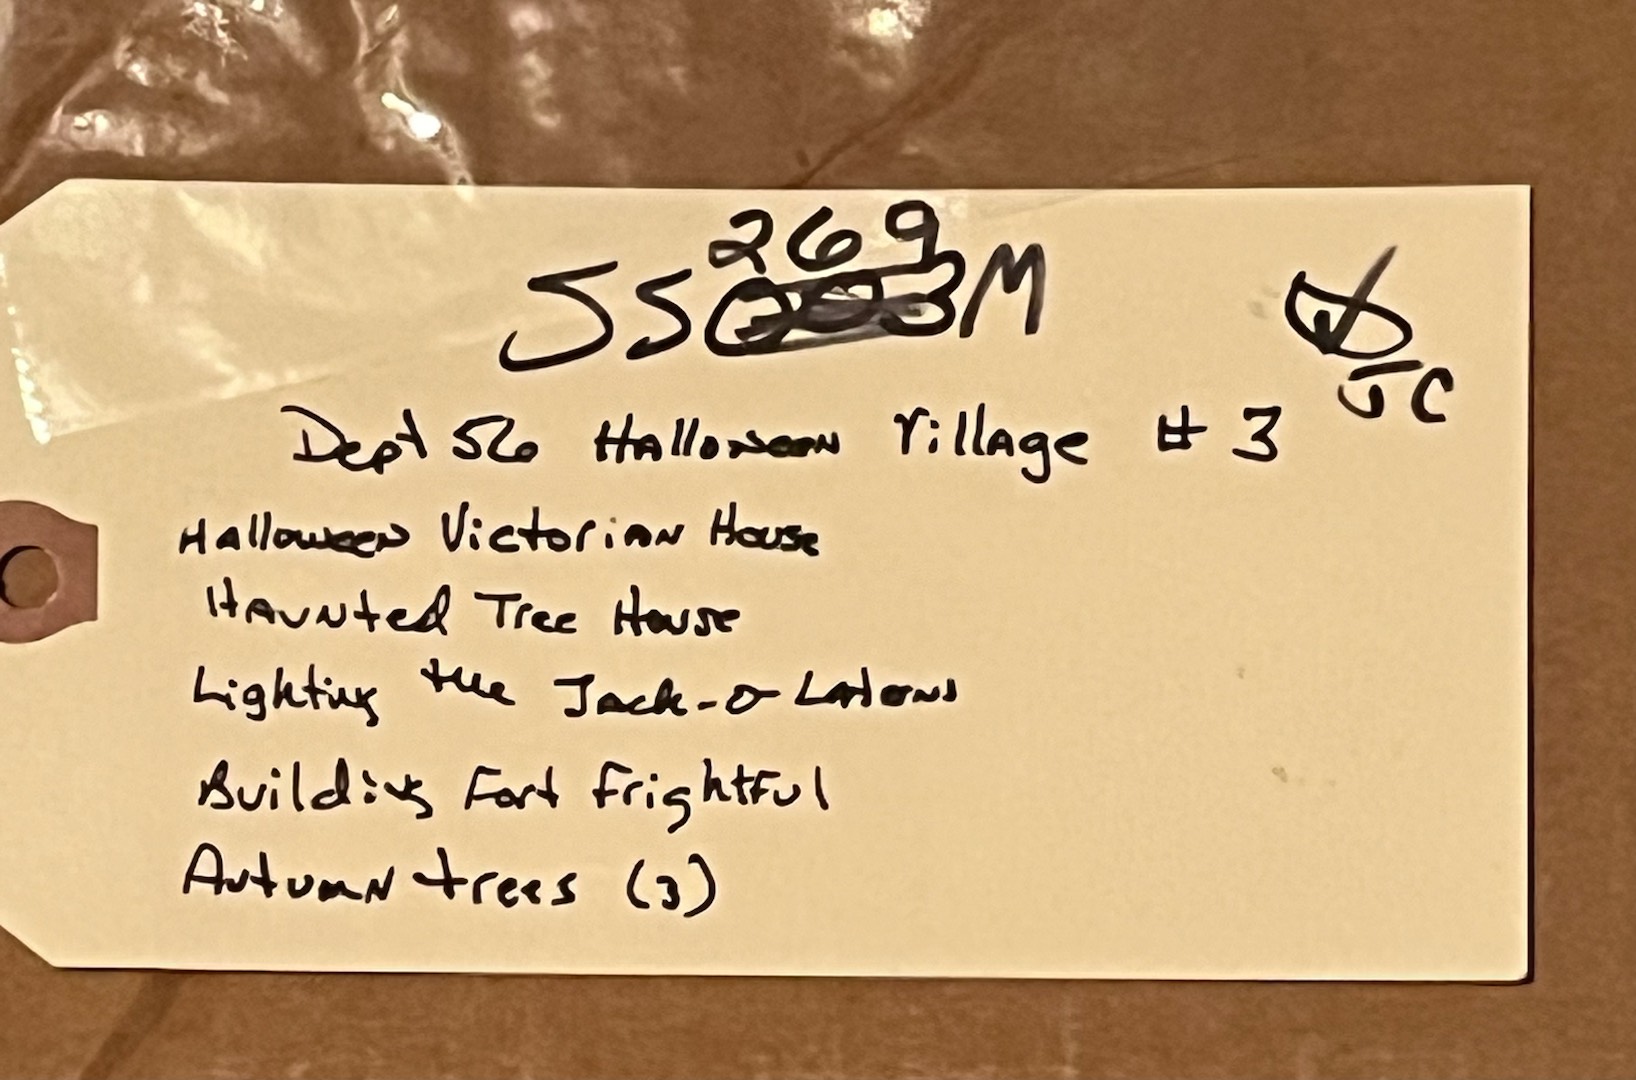 269
JS M
JC
Dept 56 Halloween Village # 3
Halloween Victorian House
Haunted Tree House
Lighting the Jack-o-Lanterns
Building Fort Frightful
Autumn trees (3)